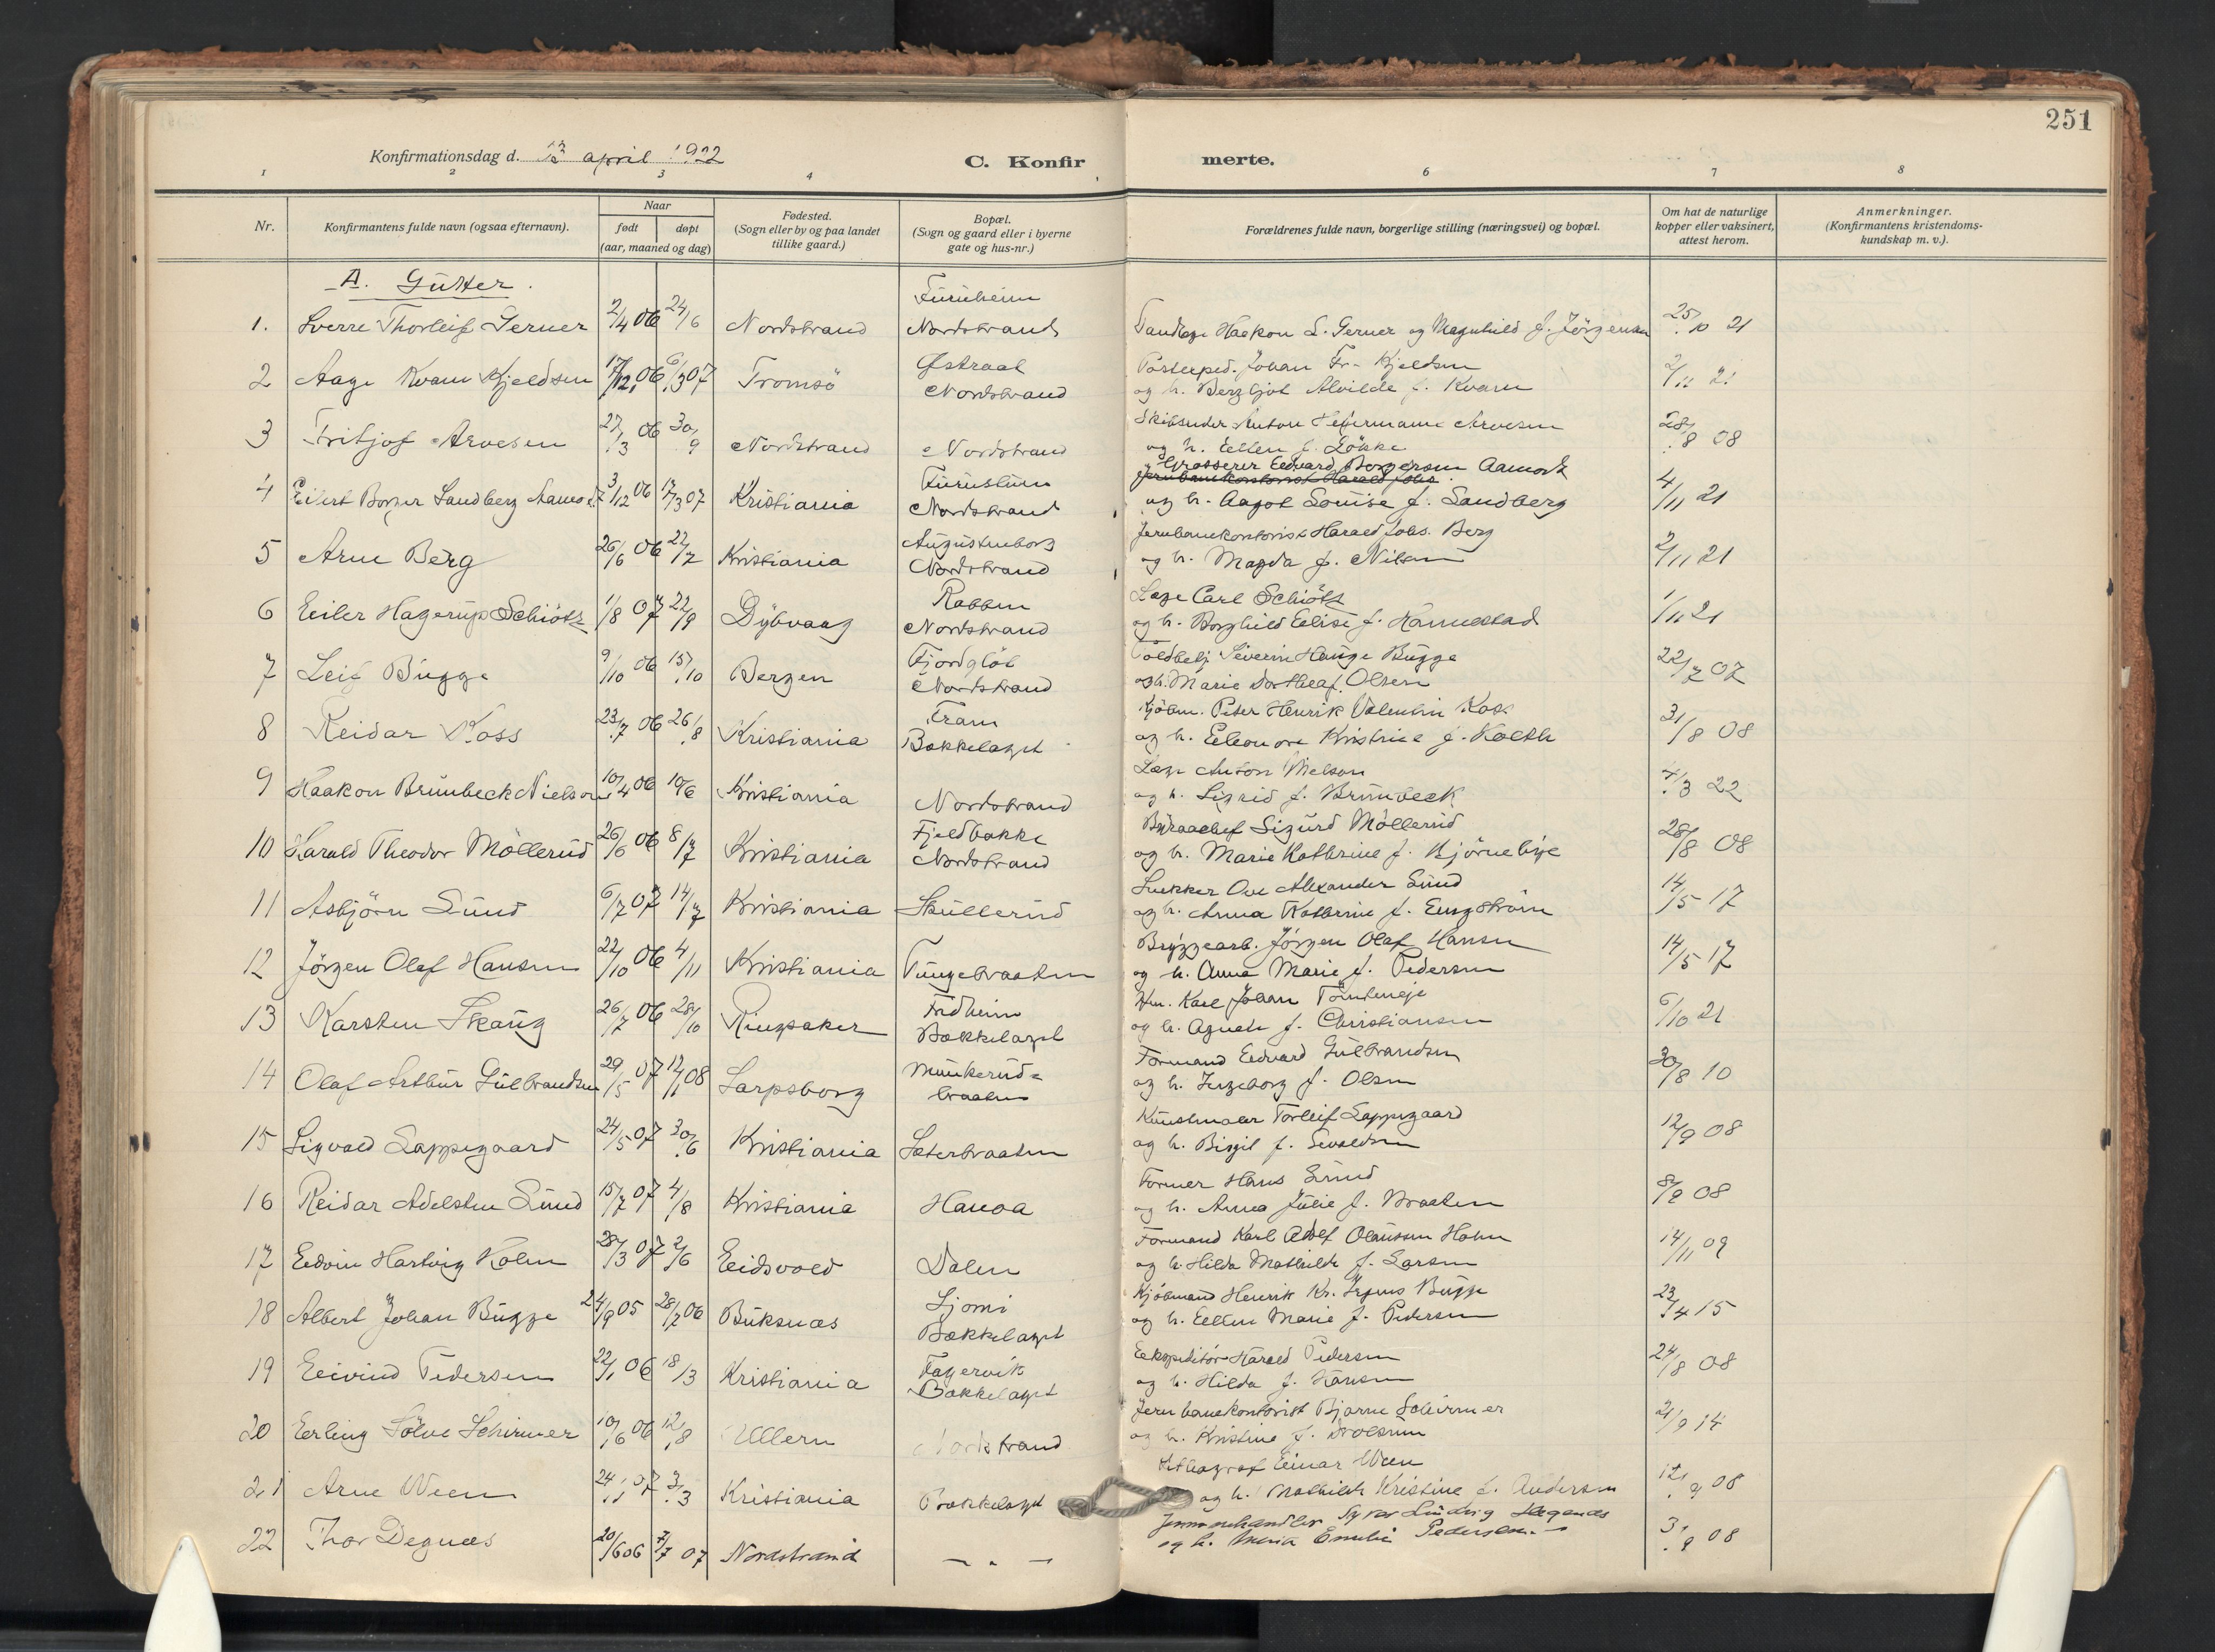 251
Konfirmationsdag d. april 1922
C. Konfir merte.
1 2 3 4 6 7 8
Nr.
Konfirmantens fulde navn (ogsaa efternavn).
Naar
født døpt
(aar, maaned og dag)
Fødested.
(Sogn eller by og paa landet
tillike gaard.)
Bopæl.
(Sogn og gaard eller i byerne
gate og hus-nr.)
Forældrenes fulde navn, borgerlige stilling (næringsvei) og bopæl.
Om hat de naturlige
kopper eller vaksinert,
attest herom.
Anmerkninger.
(Konfirmantens kristendoms-
kundskap m. v.).
A. Gutter.
Furuheim
1. Sverre Thorleif Gerner 2/4 06 24/6 Nordstrand Nordstrand Tandlæge Haakon L. Gerner og Magnhild f. Jörgensen 25/10 21
Østraat Postexped. Johan Fr. Kjeldsen
2 Aage Kvam Kjeldsen 17/12 06 6/3 07 Tromsö Nordstrand og h. Bergljot Alvilde f. Kvam 2/11 21
Anton Hermann Arvesen
3 Fritjof Arvesen 27/3 06 30/9 Nordstrand Nordstrand og h. Ellen f. Lökke 28/8 08
Grosserer Edvard Borgersen Aamodt
Jernbanekontorist Harald Johs.
4 Eilert Borger Sandberg Aamodt 3/12 06 17/3 07 Kristiania Nordstrand og h. Aagot Louise f. Sandberg 4/11 21
Augustenborg Jernbanekontorist Harald Johs. Berg
5 Arne Berg 26/6 06 22/7 Kristiania Nordstrand og h. Magda f. Nilsen 2/11 21
Rabben Læge Carl Schiötz
6 Eiler Hagerup Schiötz 1/8 07 22/9 Dybvaag Nordstrand og h. Borghild Elise f. Hannestad 1/11 21
Fjordgløt Toldbetj. Severin Hauge Bugge
7 Leif Bugge 9/10 06 15/10 Bergen Nordstrand og h. Marie Dorthea f. Olsen 22/7 07
Fram Kjöbm. Peter Henrik Valentin Koss
8 Reidar Koss 23/7 06 26/8 Kristiania Bækkelaget og h. Eleonore Kristine f. Kolth 31/8 08
Læge Anton Nielson
9 Haakon Brunbeck Nielson 10/4 06 10/6 Kristiania Nordstrand og h. Sigrid f. Brunbeck 7/3 22
Fjeldbakke Byraachef Sigurd Möllerud
10 Harald Theodor Möllerud 26/6 06 8/7 Kristiania Nordstrand og h. Marie Kathrine f. Bjørnebye 28/8 08
Snekker Ove Alexander Lund
11 Asbjörn Lund 6/7 07 14/7 Kristiania Skullerud og h. Anna Kathrine f. Engström 14/5 17
Bryggearb. Jörgen Olaf Hansen
12 Jörgen Olaf Hansen 22/10 06 4/11 Kristiania Tungebraaten og h. Anna Marie f. Pedersen 14/5 17
Fredheim Hm. Karl Johan
13 Karsten Skaug 26/7 06 28/10 Ringsaker Bækkelaget og h. Agnete f. Christiansen 6/10 21
Munkerud- Formand Edvard Gulbrandsen
14 Olaf Arthur Gulbrandsen 29/5 07 12/1 08 Sarpsborg braaten og h. Ingeborg f. Olsen 30/8 10
Kunstmaler Torleif Lappegaard
15 Sigvald Lappegaard 24/5 07 30/6 Kristiania Sæterbraaten og h. Birgit f. Sivaldsen 12/9 08
Former Hans Lund
16 Reidar Adelsten Lund 15/7 07 4/8 Kristiania Hauga og h. Anna Julie f. Braaten 8/9 08
Formand Karl Adolf Olaussen Holm
17 Edvin Hartvig Holm 28/3 07 2/6 Eidsvold Dalen og h. Hilda Mathilde f. Larsen 14/11 09
Ljomi Kjöbmand Henrik Kr. Bugge
18 Albert Johan Bugge 24/9 05 28/7 06 Buksnæs Bækkelaget og h. Ellen Marie f. Pedersen 23/4 15
Fagervik Ekspeditör Harald Pedersen
19 Eivind Pedersen 22/1 06 18/3 Kristiania Bækkelaget og h. Hilda f. Hansen 24/8 08
Jernbanekontorist Bjarne Schirmer
20 Erling Sölve Schirmer 10/6 06 12/8 Ullern Nordstrand og h. Kristine f. 21/9 14
Lithograf Einar Ween
21 Arne Ween 24/1 07 3/3 Kristiania Bækkelaget og h. Mathilde Kristine f. Andersen 12/9 08
Ludvig Degnæs
22 Thor Degnæs 20/6 06 7/7 07 Nordstrand — " — og h. Maria Emilie Pedersen. 3/9 08